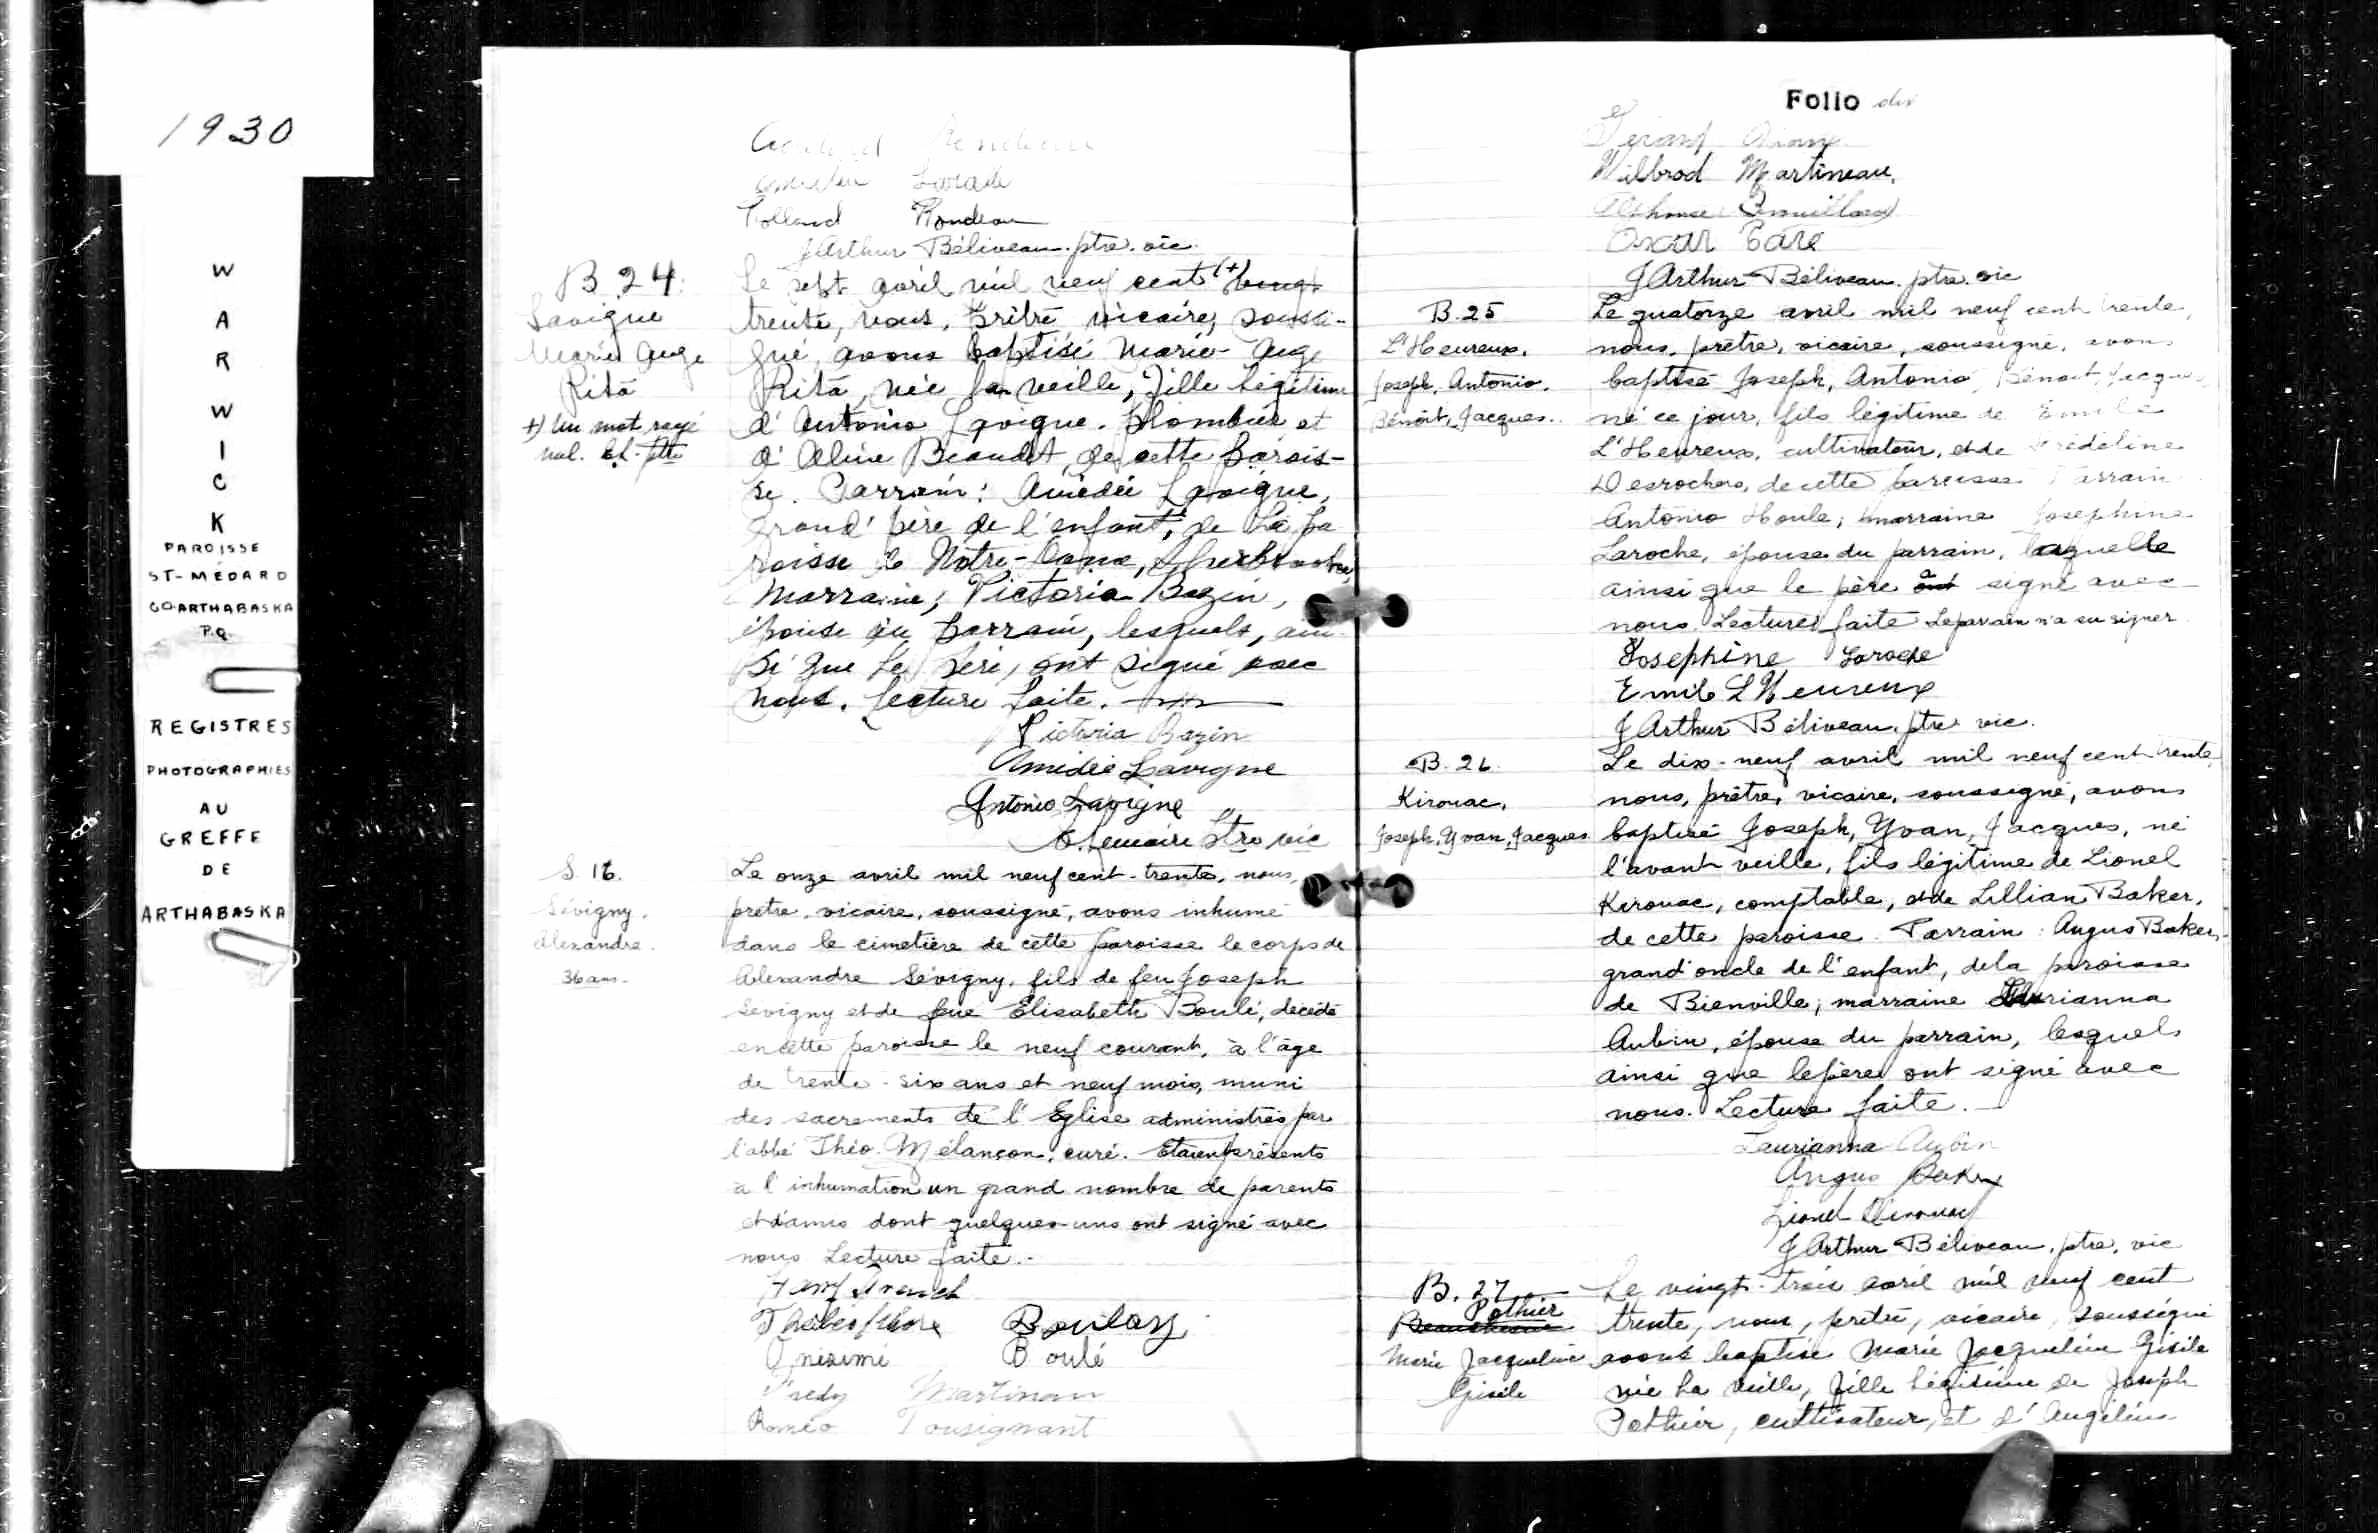 1930
WARWICK
PAROISSE
ST-MÉDARD
CO-ARTHABASKA
P.Q.
REGISTRES
PHOTOGRAPHIES
AU
GREFFE
DE
ARTHABASKA
Rolland Rondeau
J Arthur Béliveau. ptre. vic.
B 24.
Lavigne
Marie Ange
Rita
+) Un mot rayé
nul.
Le sept avril mil neuf cent (+) vingt
trente, nous, prêtre, vicaire, soussi-
gné, avons baptisé Marie-Ange
Rita, née la veille, fille légitime
d'Antonio Lavigne, plombier et
d'Aline Beaudet, de cette parois-
se. Parrain: Amédée Lavigne,
grand'père de l'enfant, de la pa
roisse de Notre-Dame, Sherbrooke,
Marraine; Victoria Bazin,
épouse du parrain, lesquels, ain-
si que le père, ont signé avec
nous. Lecture faite.
Victoria Bazin
Amédée Lavigne
Antonio Lavigne
Lemaire Ptre vic
S. 16.
Sévigny.
Alexandre.
36 ans.
Le onze avril mil neuf cent-trente, nous,
prêtre, vicaire, soussigné, avons inhumé
dans le cimetière de cette paroisse le corps de
Alexandre Sévigny, fils de feu Joseph
Sévigny et de feue Elisabeth Boulé, décédé
en cette paroisse le neuf courant, à l'âge
de trente-six ans et neuf mois, muni
des sacrements de l'Eglise administrés par
l'abbé Théo. Mélançon, curé. Etaient présents
à l'inhumation un grand nombre de parents
et d'amis dont quelques-uns ont signé avec
nous Lecture faite.-
Boulay
Onésime Boulé
Fredy Martineau
Roméo Tousignant
Folio dix
Gérard
Wilbrod Martineau,
Alphonse Drouillard
Oscar Paré
J Arthur Béliveau. ptre. vic
B. 25
L'Heureux.
Joseph, Antonio.
Bénoit, Jacques..
Le quatorze avril mil neuf cent trente,
nous, prêtre, vicaire, soussigné, avons
baptisé Joseph, Antonio, Bénoit, Jacques,
né ce jour, fils légitime de Emile
L'Heureux, cultivateur, et de Frédéline
Desrochers, de cette paroisse Parrain
Antonio Houle; marraine Josephine
Laroche, épouse du parrain, laquelle
ainsi que le père ont a signé avec
nous. Lecture faite Le parrain n'a su signer.
Josephine Laroche
Emile L'Heureux
J Arthur Béliveau, ptre vic.
B. 26.
Kirouac,
Joseph, Yvan, Jacques
Le dix-neuf avril mil neuf cent trente,
nous, prêtre, vicaire, soussigné, avons
baptisé Joseph, Yvan, Jacques, né
l'avant veille, fils légitime de Lionel
Kirouac, comptable, et de Lillian Baker,
de cette paroisse. Parrain: Angus Baker,
grand'oncle de l'enfant, de la paroisse
de Bienville; marraine Laurianna
Aubin, épouse du parrain, lesquels
ainsi que le père ont signé avec
nous. Lecture faite.
Laurianna Aubin
Angus Baker
Lionel Kirouac
J Arthur Béliveau, ptre, vic
B. 27
Pothier
Marie Jacqueline
Gisèle
Le vingt-trois avril mil neuf cent
trente, nous, prêtre, vicaire, soussigné
avons baptisé Marie Jacqueline Gisèle
née la veille, fille légitime de Joseph
Pothier, cultivateur, et d'Angéline